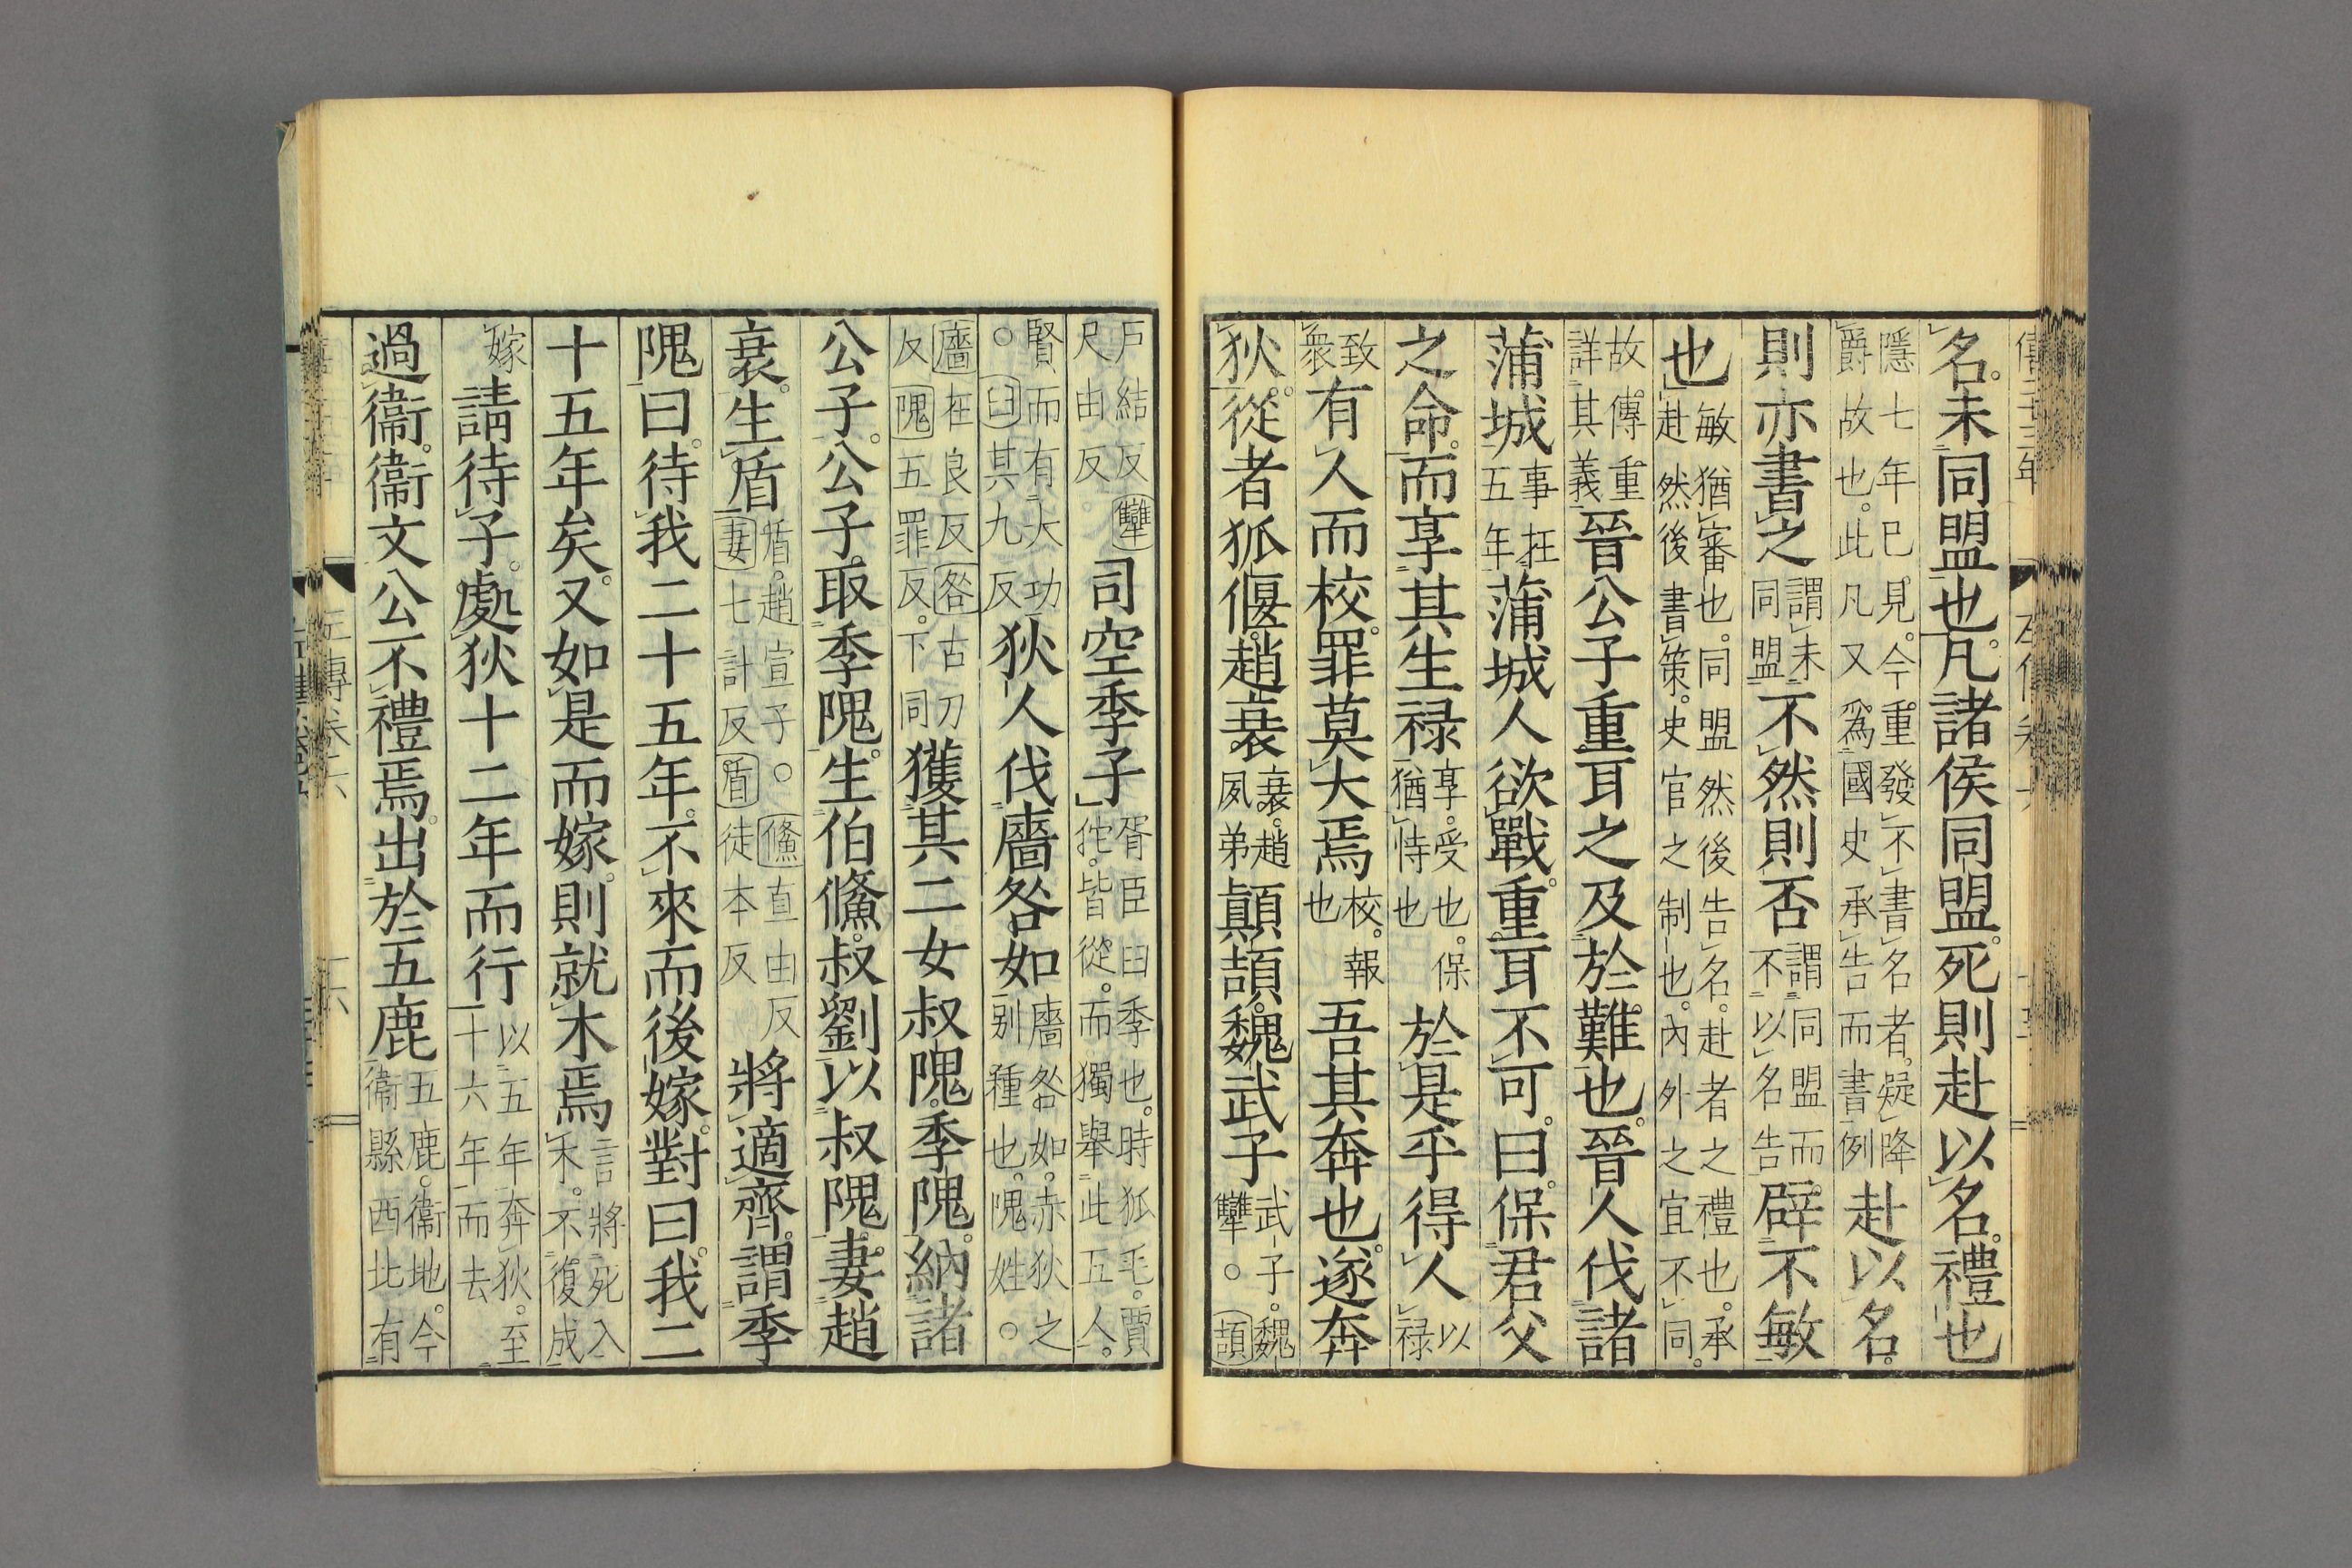 名。未同盟也。凡諸侯同盟。死則赴以名。禮也
隱七年已見。今重發不書名者。疑降爵故也。此凡又爲國史承告而書例赴以名。
則亦書之謂未同盟不然則否謂同盟而不以名告辟不敏
也敏猶審也。同盟然後告名。赴者之禮也。承赴然後書策。史官之制也。內外之宜不同。
故傳重詳其義晉公子重耳之及於難也。晉人伐諸
蒲城事在五年蒲城人欲戰。重耳不可。曰。保君父
之命。而享其生祿享。受也。保猶恃也於是乎得人以祿
致衆有人而校。罪莫大焉校。報也吾其奔也。遂奔
狄。從者狐偃。趙衰。衰。趙夙弟顛頡。魏武子武子。魏犨。○頡
戶結反犨尺由反司空季子胥臣臼季也。時狐毛。賈佗。皆從。而獨舉此五人。
賢而有大功○臼其九反狄人伐廧咎如廧咎如。赤狄之别種也。隗姓。○
廧在良反咎古刀反隗五罪反。下同獲其二女叔隗。季隗。納諸
公子。公子。取季隗。生伯鯈。叔劉以叔隗。妻趙
衰。生盾盾。趙宣子。○鯈直由反妻七計反盾徒本反將適齊。謂季
隗曰。待我二十五年。不來而後嫁。對曰。我二
十五年矣。又如是而嫁。則就木焉言將死入木。不復成
嫁請待子。處狄十二年而行以五年奔狄。至十六年而去
過衞。衞文公不禮焉。出於五鹿五鹿。衞地。今衞縣西北有